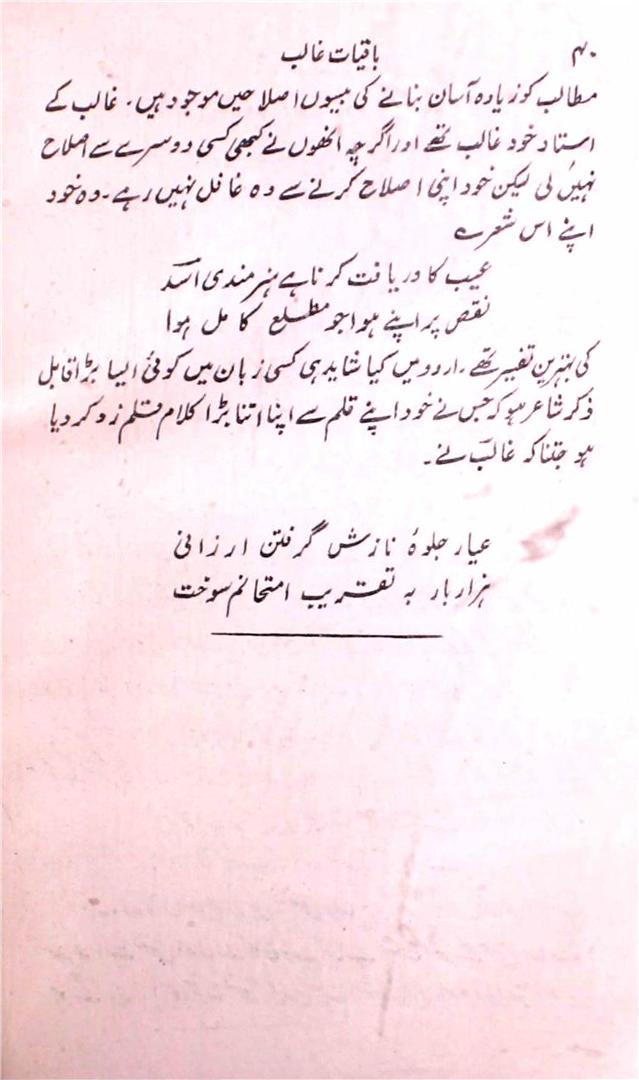 ۴۰ باقیات غالب
مطالب کو زیادہ آسان بنانے کی بیسیوں اصلاحیں موجود ہیں۔ غالب کے
استاد خود غالب تھے اور اگرچہ انھوں نے کبھی کسی دوسرے سے اصلاح
نہیں لی لیکن خود اپنی اصلاح کرنے سے وہ غافل نہیں رہے۔ وہ خود
اپنے اس شعر ے
عیب کا دریافت کرنا ہے ہنرمندی اسدؔ
نقص پر اپنے ہوا جو مطلع کامل ہوا
کی بہترین تفسیر تھے۔ اردو میں کیا شاید ہی کسی زبان میں کوئی ایسا بڑا قابل
ذکر شاعر ہو کہ جس نے خود اپنے قلم سے اپنا اتنا بڑا کلام قلم زد کر دیا
ہو جتنا کہ غالبؔ نے۔
عیار جلوۂ نازش گرفتن ارزانی
ہزار بار بہ تقریب امتحانم سوخت